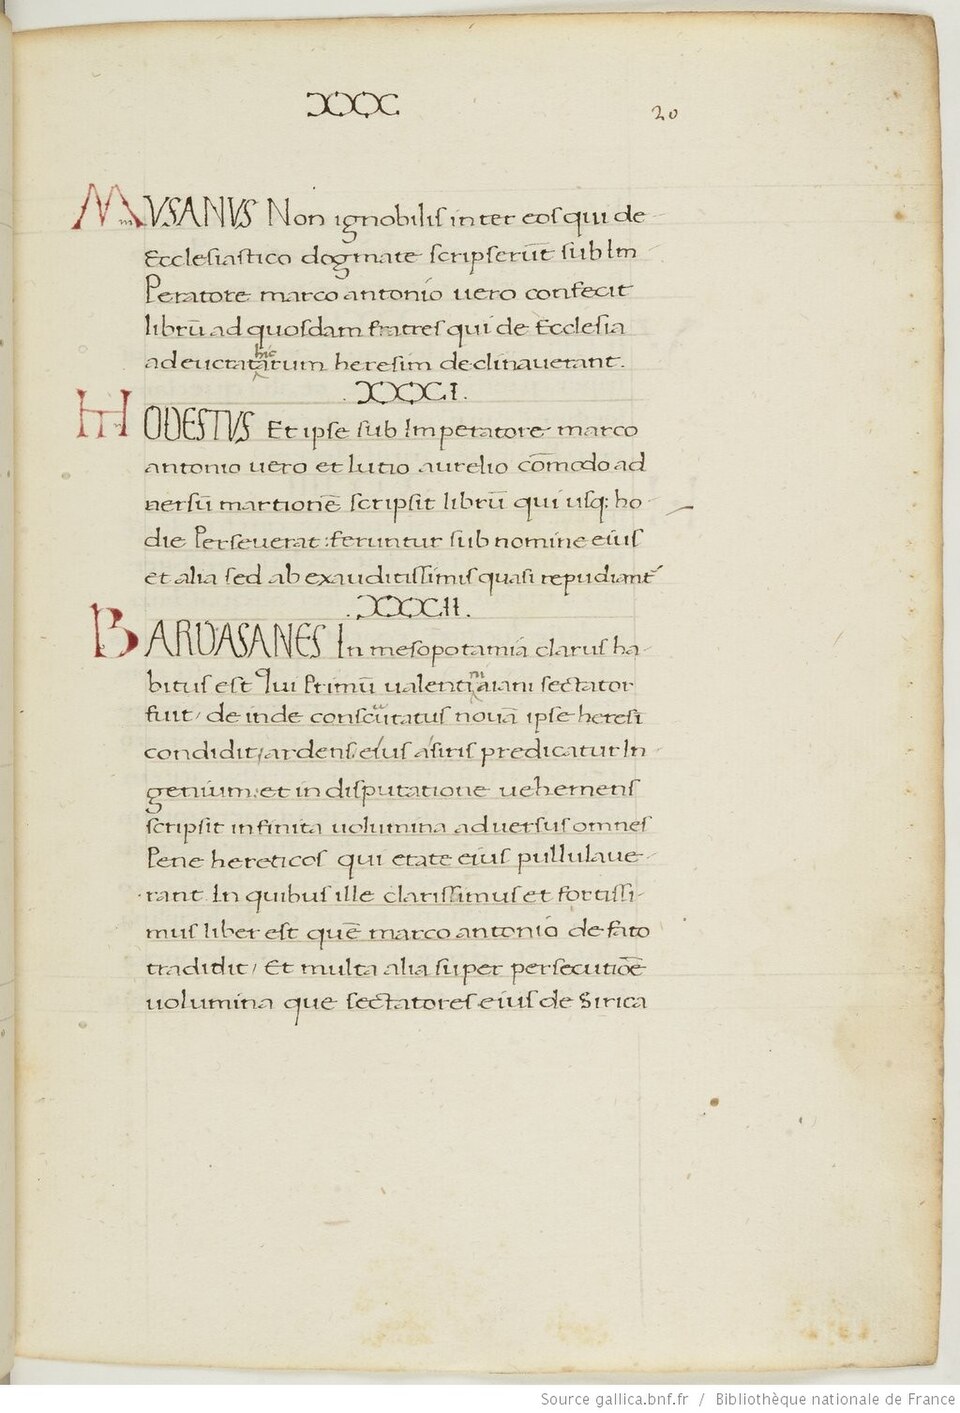 XXX
20
MVSANVS Non ignobilis inter eos qui de
Ecclesiastico dogmate scripserūt sub Im
Peratore marco antonio uero confecit
librū ad quosdam fratres qui de Ecclesia
hic
ad euctatarum heresim declinauerant.
.XXXI.
MODESTVS Et ipse sub Imperatore marco
antonio uero et lutio aurelio cōmodo ad
uersū martionē scripsit librū qui usq; ho
die Perseuerat: feruntur sub nomine eius
et alia sed ab exauditissimis quasi repudiant
.XXXII.
BARDASANES In mesopotamia clarus ha
bitus est Qui Primū ualentiniani sectator
fuit/ deinde confutatus nouā ipse heresi
condidit/ ardens eius asiris predicatur In
genium: et in disputatione uehemens
scripsit infinita uolumina aduersus omnes
Pene hereticos qui etate eius pullulaue
rant. In quibus ille clarissimus et fortissi
mus liber est quē marco antonio de fato
tradidit/ Et multa alia super persecutiōe
uolumina que sectatores eius de Sirica
Source gallica.bnf.fr / Bibliothèque nationale de France